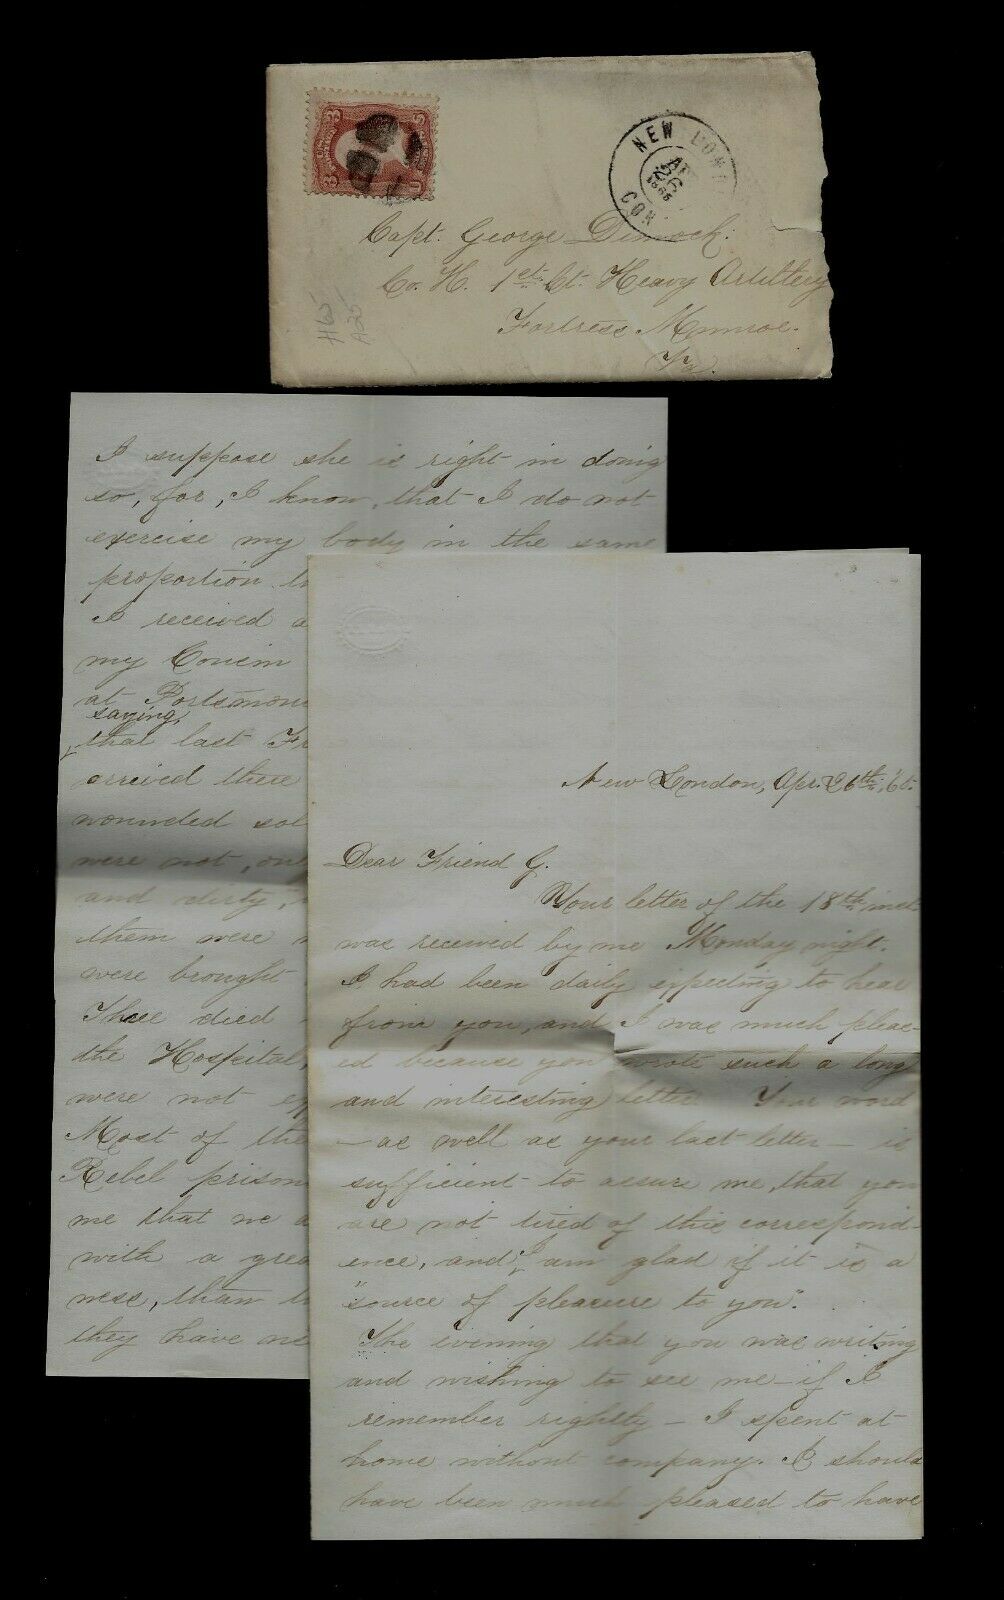 3 3
U
NEW LOND
CON
AP
26
1865
Capt. George Dimock.
Co. H. 1st. Ct. Heavy Artillery
Fortress Monroe.
Va.
H65-
A25-
I suppose she is right in doing
so, for, I know, that I do not
exercise my body in the same
proportion
I received a
my Cousin
at Portsmou
saying,
that last Fr
arrived there
wounded sol
were not, on
and dirty,
them were
were brought
Three died
the Hospital,
were not
Most of the
Rebel prison
me that no
with a grea
ness, than
they have ne
New London, Apr. 26th, '65.
Dear Friend G.
Your letter of the 18th inst
was received by me Monday night.
I had been daily expecting to hear
from you, and I was much pleas-
ed because you wrote such a long
and interesting letter. Your word
- as well as your last letter - is
sufficient to assure me, that you
are not tired of this correspond-
ence, and I am glad if it is a
"source of pleasure to you".
The evening that you was writing
and wishing to see me - if I
remember rightly - I spent at
home without company. I should
have been much pleased to have